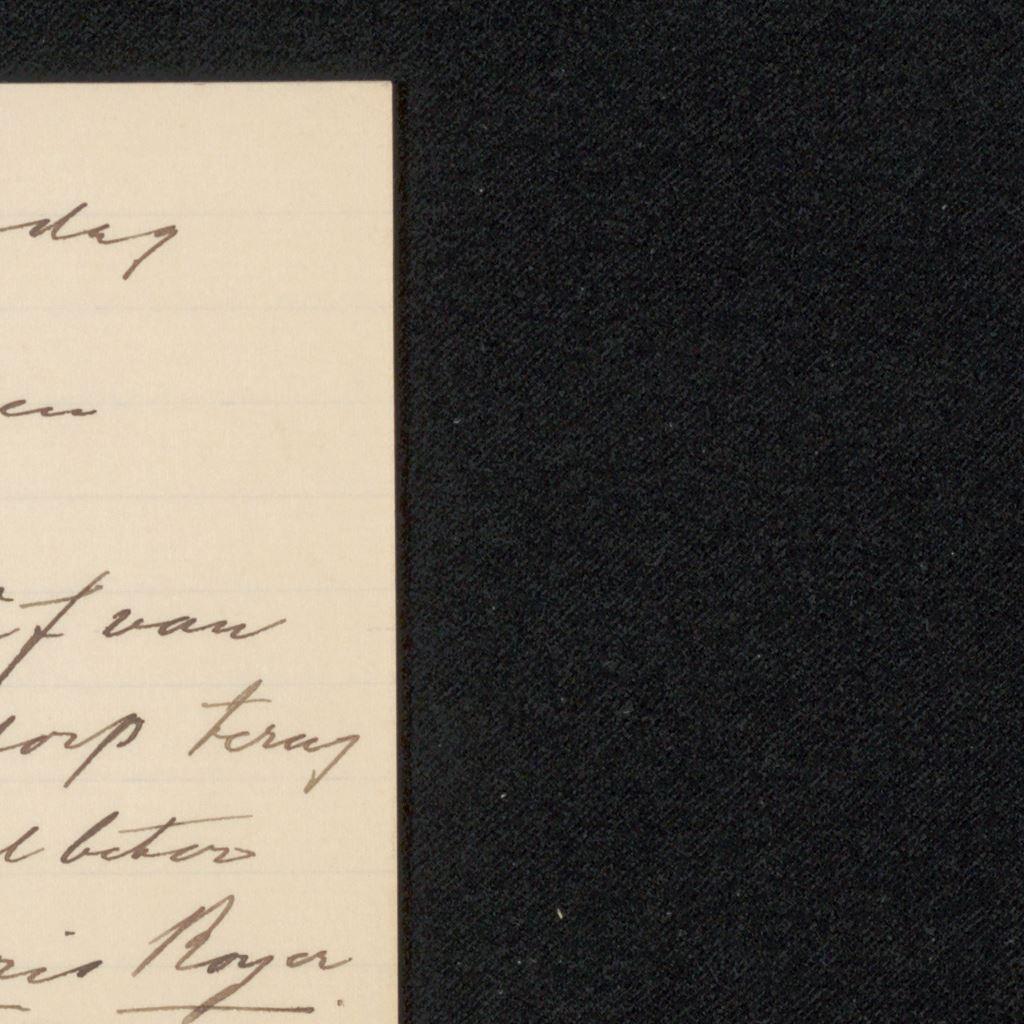 dag
en
f van
dorp terug
l beter
ris Royer.